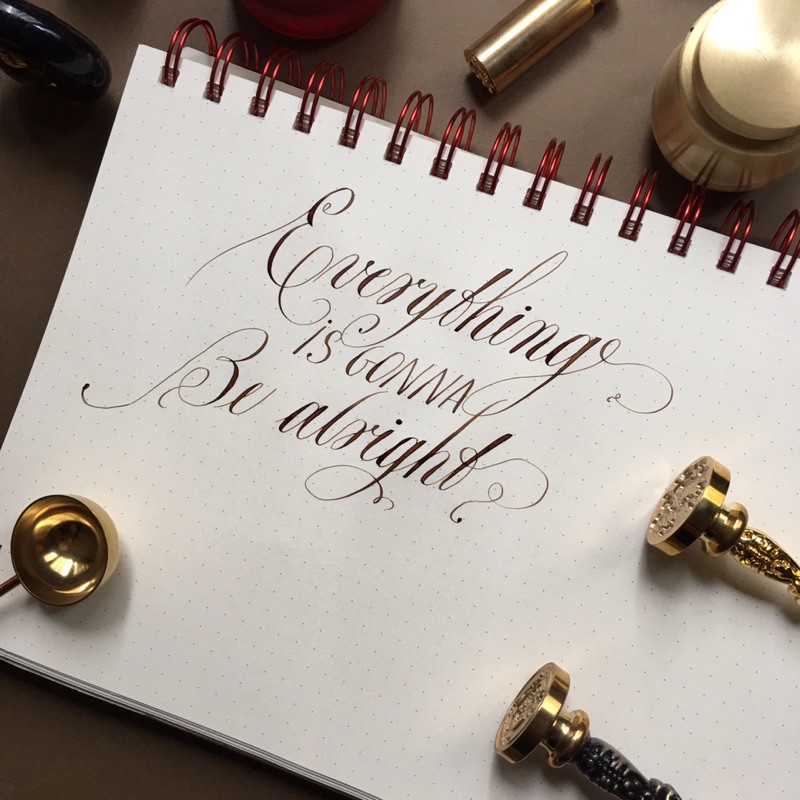 Everything
is GONNA
Be alright